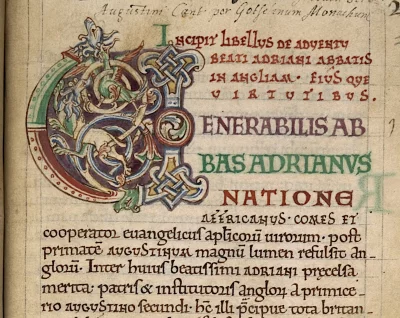 Augustini Cant. per Gotselinum Monachum
Incipit libellus de adventu
beati Adriani abbatis
in Angliam. Eius que
virtutibus.
VENERABILIS AB
BAS ADRIANVS
NATIONE
AFFRICANVS. COMES ET
cooperator euuangelicus aplicorũ uirorum. post
primatẽ AUGUSTINUM magnũ lumen refulsit an-
glorũ. Inter huius beatissimi ADRIANI p̃celsa
merita. patris & institutoris anglorũ a primice-
rio AUGUSTINO secundi. hẽ illi p̃cipue tota britan-